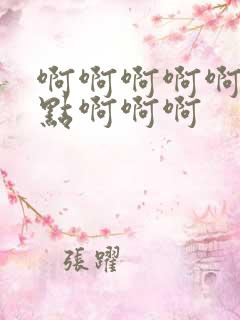 啊啊啊啊啊
點啊啊啊
張躍